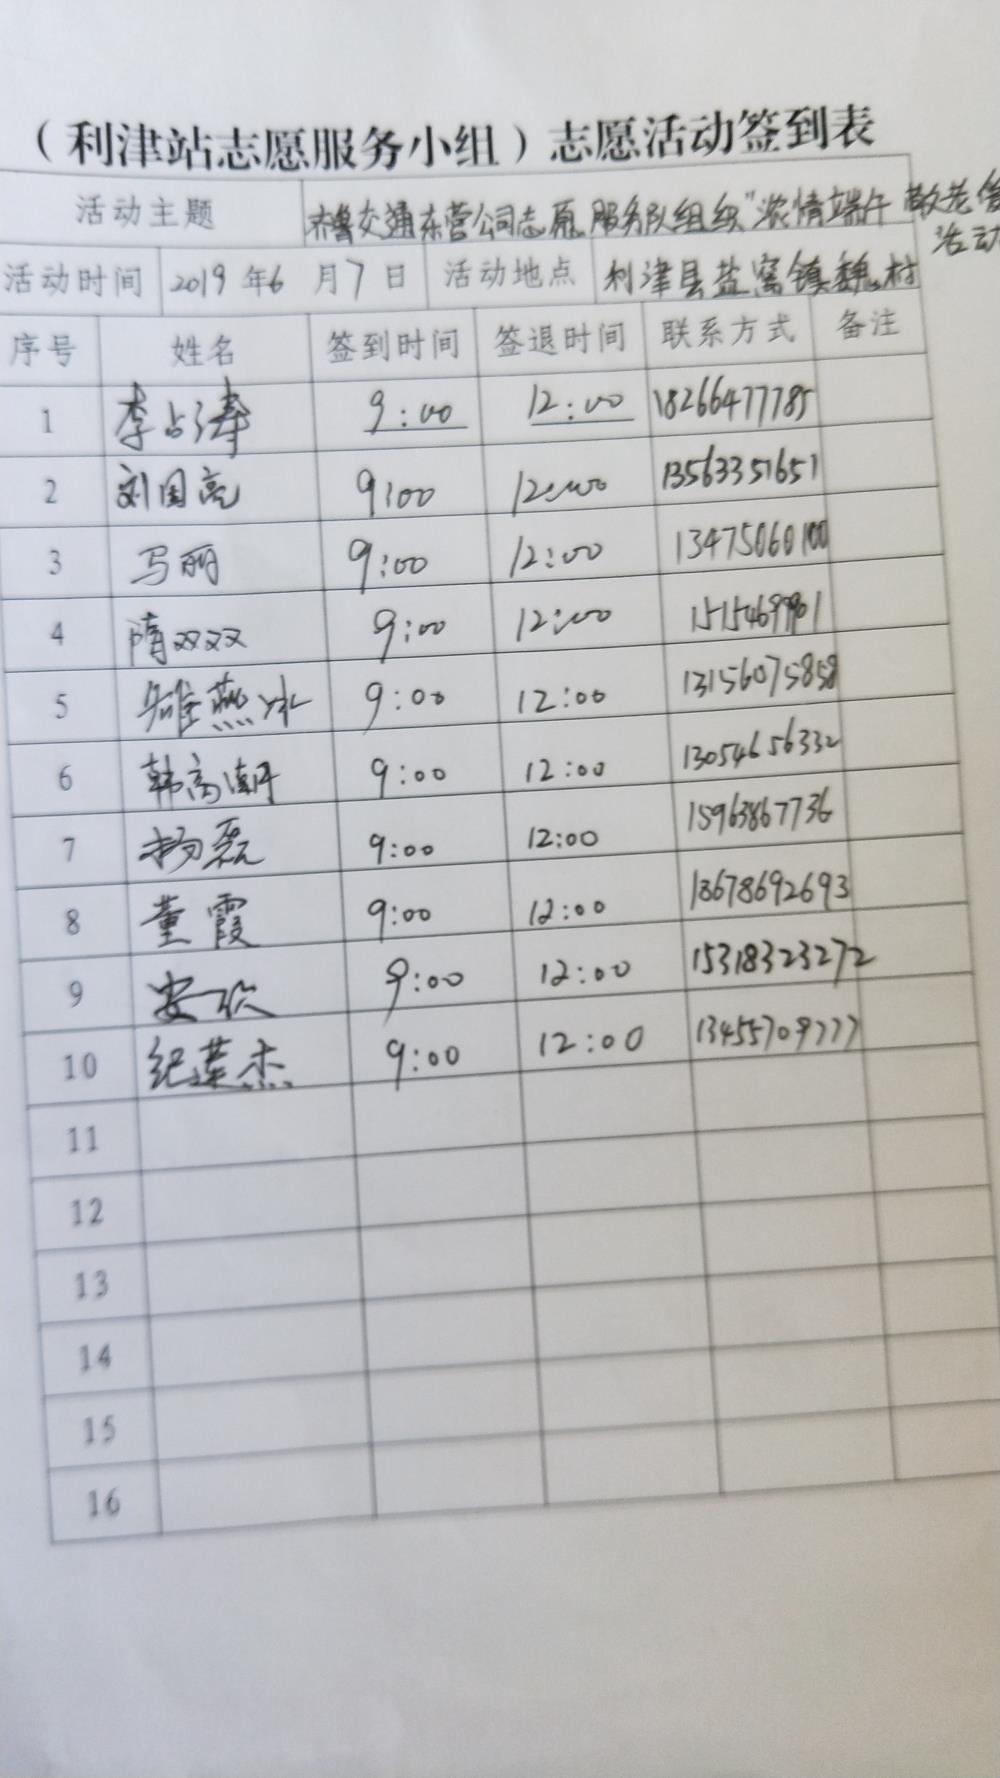 （利津站志愿服务小组）志愿活动签到表
活动主题 齐鲁交通东营公司志愿服务队组织“浓情端午 敬老
活动
活动时间 2019年6月7日 活动地点 利津县盐窝镇魏村
序号 姓名 签到时间 签退时间 联系方式 备注
1 李占涛 9:00 12:00 18266477785
2 刘国亮 9:00 12:00 13563351651
3 马丽 9:00 12:00 13475060100
4 隋双双 9:00 12:00
5 燕冰 9:00 12:00 13156075858
6 韩高潮 9:00 12:00 13054656332
7 杨磊 9:00 12:00 15963867736
8 董霞 9:00 12:00 18678692693
9 安欣 9:00 12:00 15318323272
10 纪莲杰 9:00 12:00 13455709777
11
12
13
14
15
16